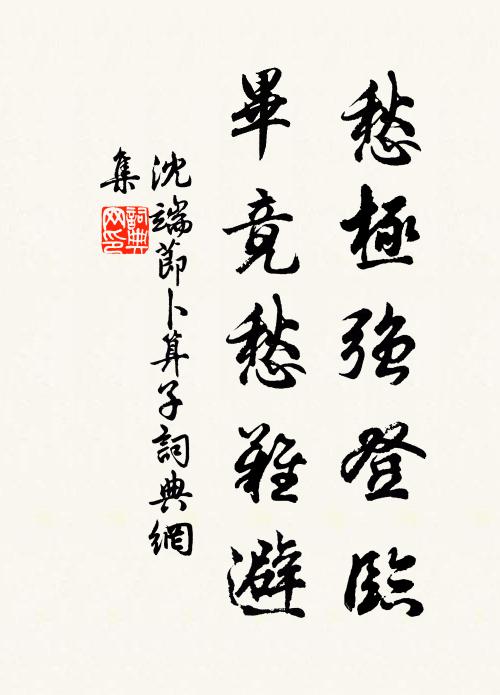 愁極強登臨
畢竟愁難避
沈端節卜算子詞典網
集
詞典
网印